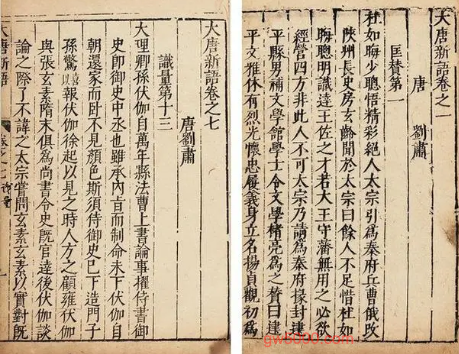 大唐新語卷之一
唐 劉肅
匡贊第一
杜如晦少聰悟精彩絕人太宗引爲秦府兵曹俄改
陝州長史房玄齡聞於太宗曰餘人不足惜杜如
晦聰明識達王佐之才若大王守藩無用之必欲
經營四方非此人不可太宗乃請爲秦府掾封建
平縣男補文學館學士令文學褚亮爲之贊曰建
平文雅休有烈光懷忠履義身立名揚貞觀初爲
大唐新語卷之七
唐劉肅
識量第十三
大理卿孫伏伽自萬年縣法曹上書論事權侍書御
史即御史中丞也雖承內旨而制命未下伏伽自
朝還家而卧不見顏色斯須侍御史已下造門子
孫驚以報伏伽徐起以見之時人方之顧雍伏伽
與張玄素隋末俱爲尚書令史既官達後伏伽談
論之際了不諱之太宗嘗問玄素玄素以實對既
大唐新語 卷之七